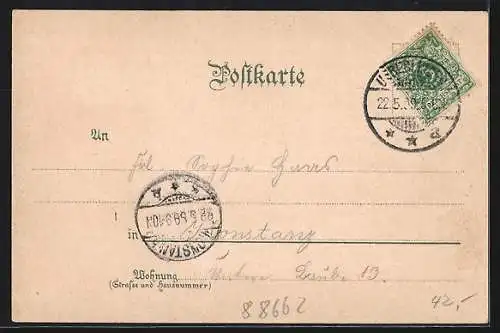 Postkarte
22.5.99
An
Frl. Sophie Haas
KONSTANZ
22.5.99.
in Konstanz
Wohnung
(Strasse und Hausnummer)
Untere Laube 13.
88662
42,-